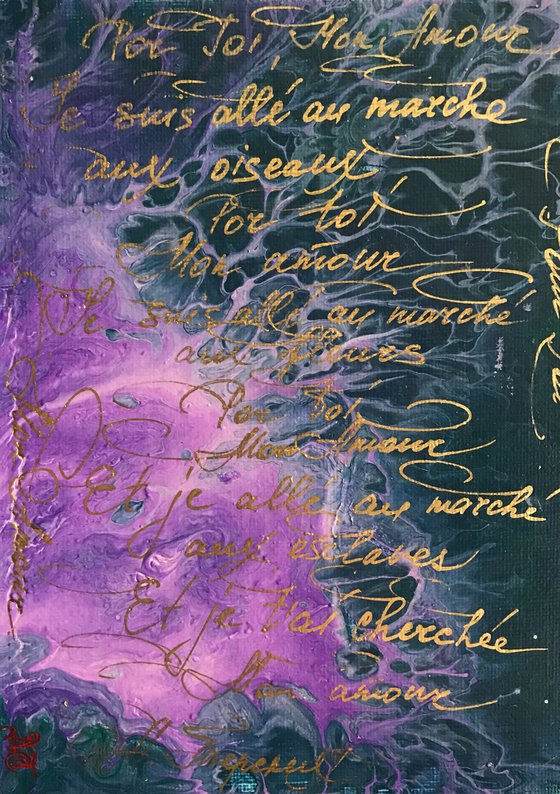 Por Toi, Mon Amour
Je suis allé au marche
aux oiseaux
Por toi
Mon amour
Je suis allé au marché
aux fleurs
Por Toi
Mon Amour
Et je allé au marché
aux esclaves
Et je t'ai cherchée
Mon amour